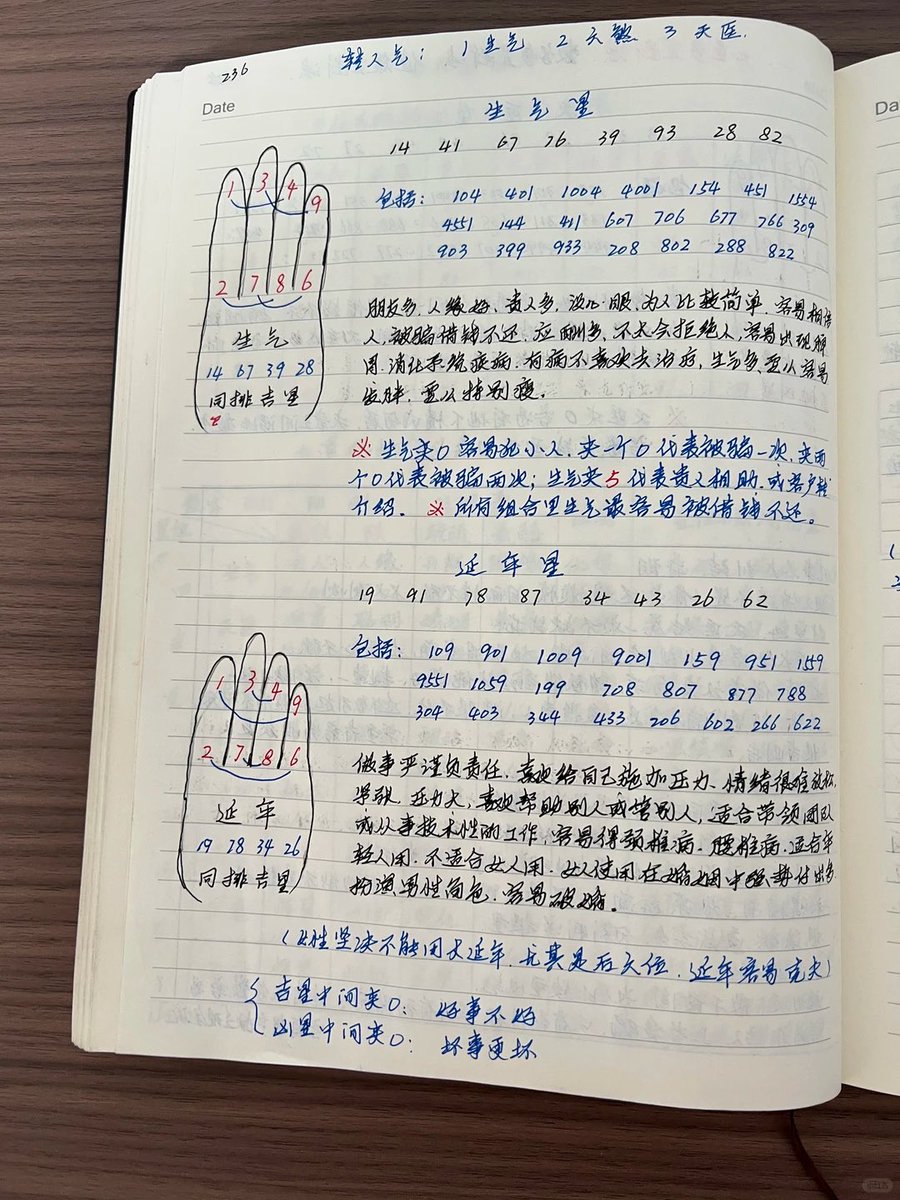 236
辁人气： 1 生气 2 天煞 3 天医.
Date
生气星
14 41 67 76 39 93 28 82
1 3 4 9
包括： 104 401 1004 4001 154 451 1554
4551 144 411 607 706 677 766 309
903 399 933 208 802 288 822
2 7 8 6
生气
14 67 39 28
同排吉星
朋友多, 人缘好, 贵人多, 没心眼, 为人比较简单, 容易相信
人, 被骗借钱不还, 应酬多, 不太会拒绝人, 容易出现肠
胃, 消化系统疾病, 有病不喜欢去治疗, 生气多, 要么容易
发胖, 要么特别瘦.
※ 生气夹0容易犯小人, 夹一个0代表被骗一次, 夹两
个0代表被骗两次; 生气夹5代表贵人相助, 或客户转
介绍. ※ 所有组合里生气最容易被借钱不还。
延年星
19 91 78 87 34 43 26 62
包括： 109 901 1009 9001 159 951 1559
9551 1059 199 708 807 877 788
304 403 344 433 206 602 266 622
1 3 4 9
2 7 8 6
延年
19 78 34 26
同排吉星
做事严谨负责任, 喜欢给自己施加压力, 情绪很难放松,
紧张, 压力大, 喜欢帮助别人或管别人, 适合带领团队
或从事技术性的工作, 容易得颈椎病, 腰椎病, 适合年
轻人用, 不适合女人用, 女人使用在婚姻中强势付出多
扮演男性角色, 容易破婚。
(女性坚决不能用大延年, 尤其是后六位, 延年容易克夫)
吉星中间夹0： 好事不好
凶星中间夹0： 坏事更坏